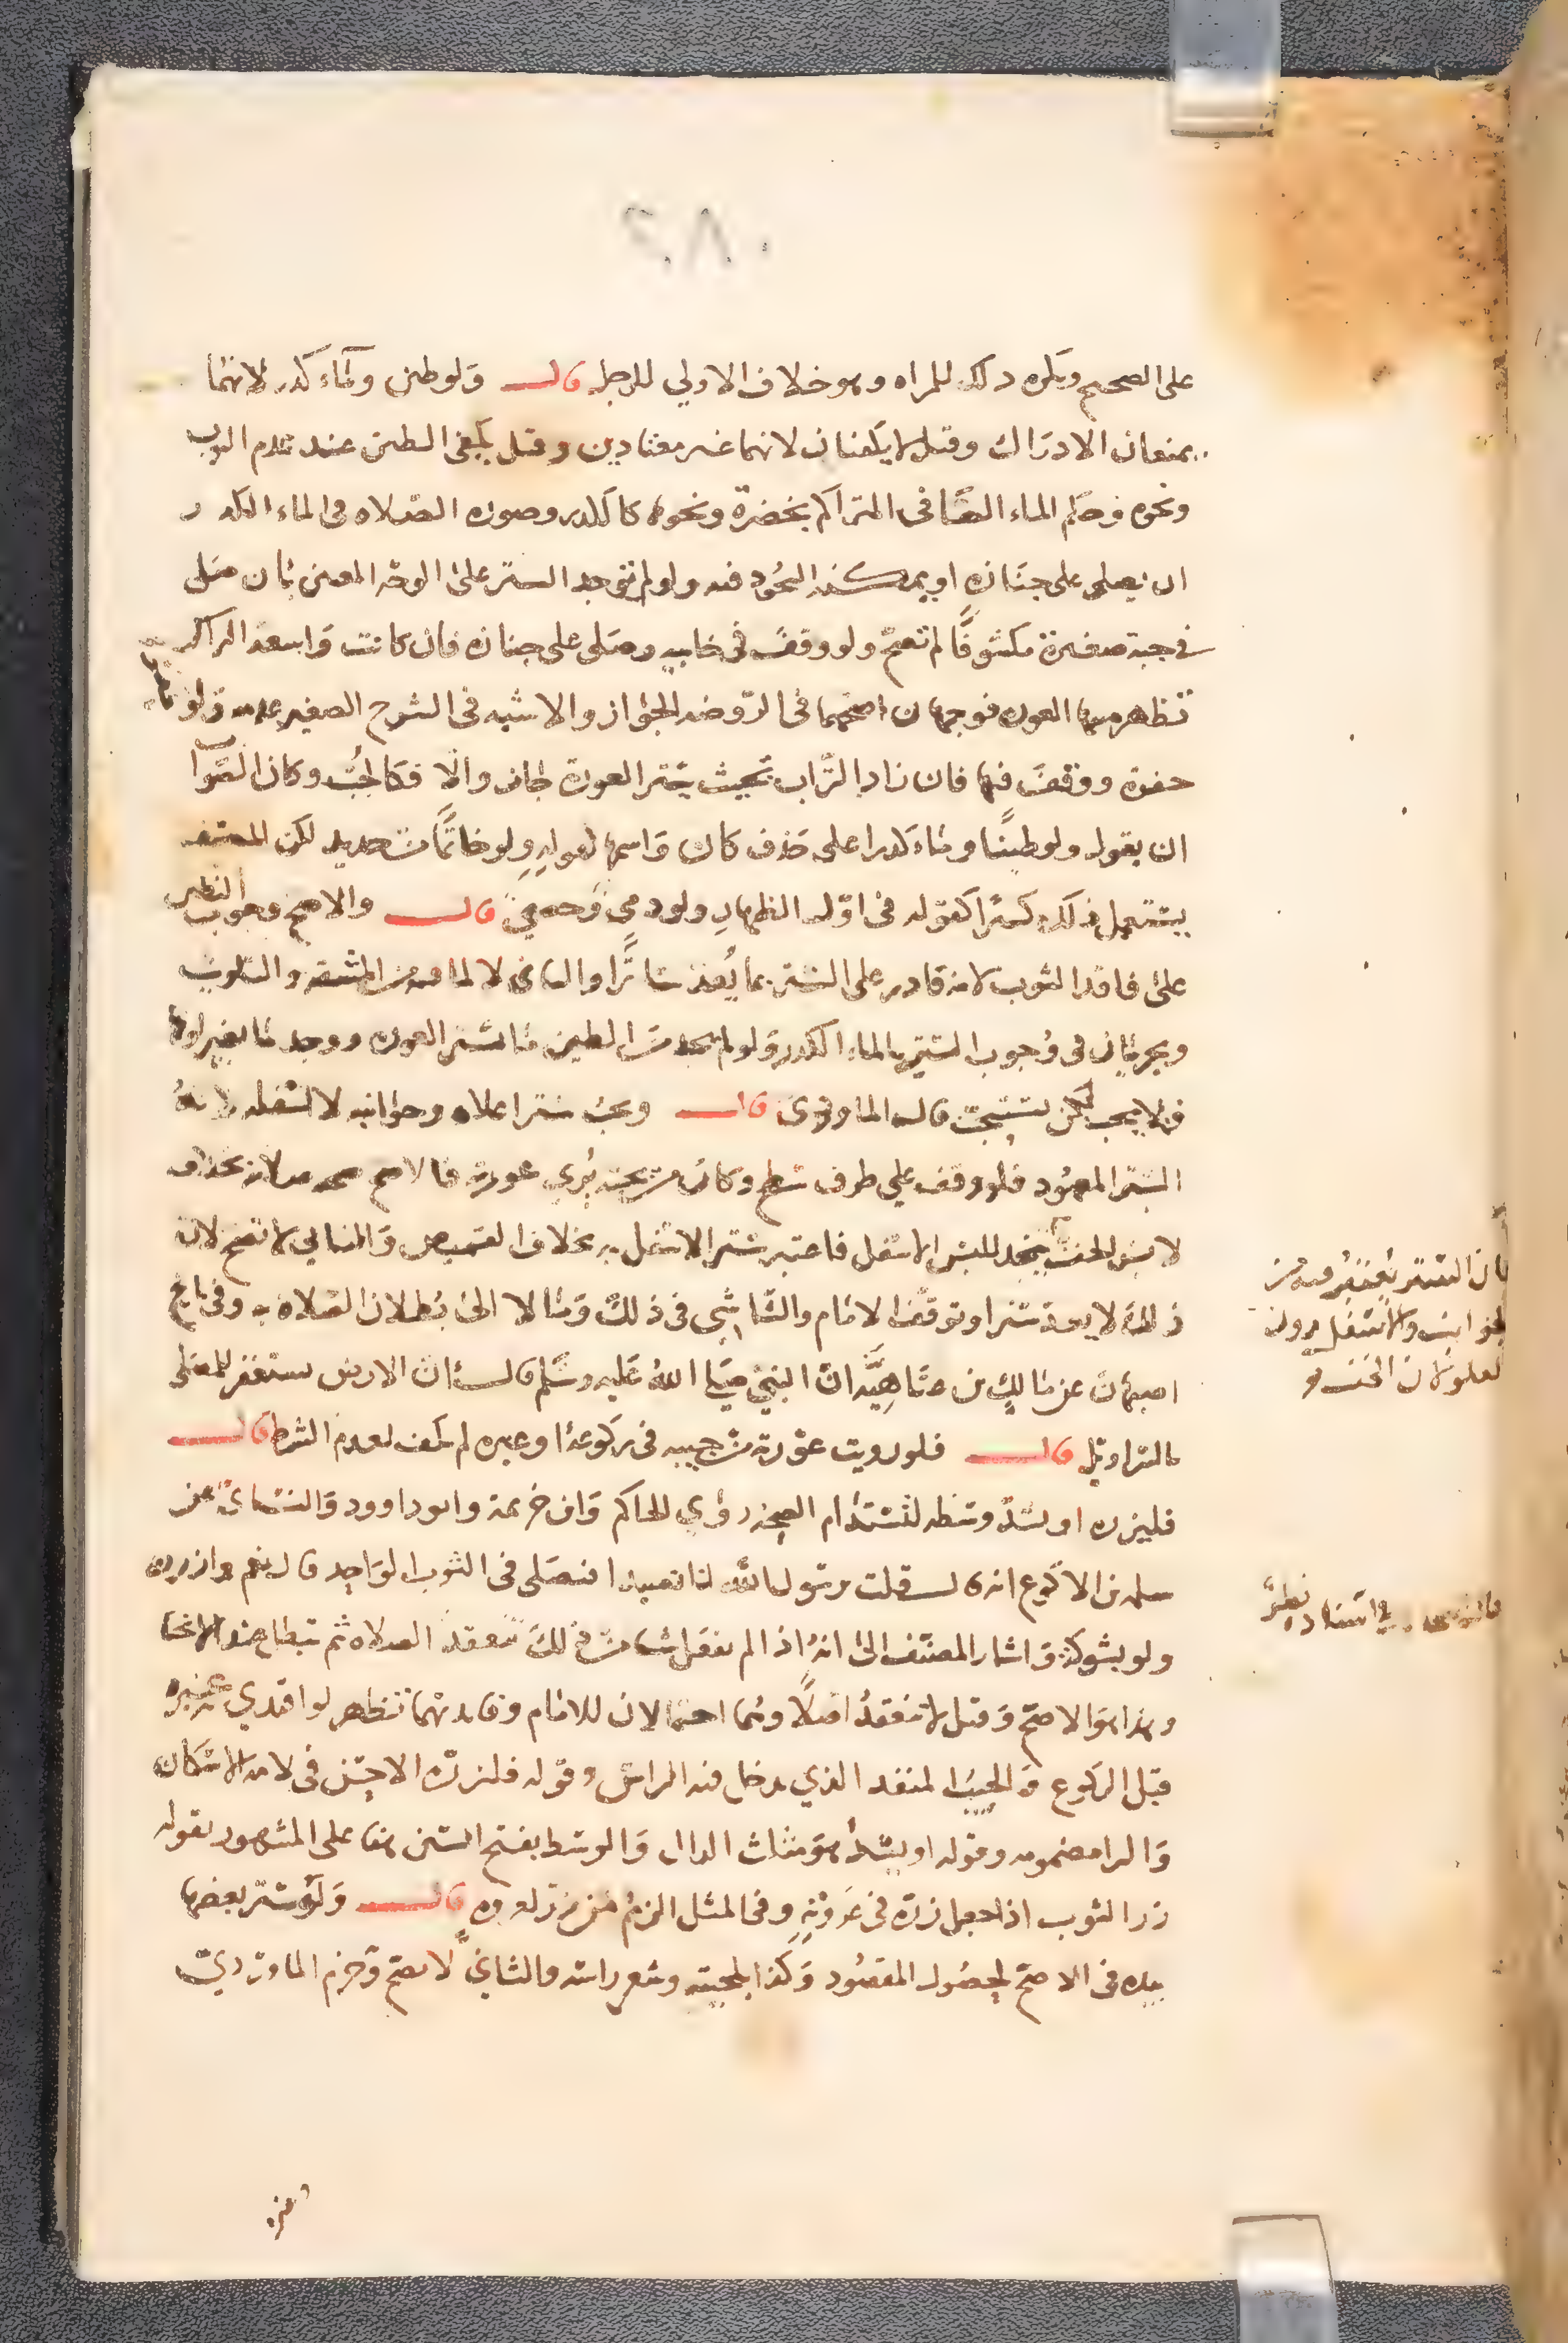 ٢٨٠
على الصحيح ويكره ذلك للمراه وهو خلاف الاولي للرجل قال ولو طين وماء كدر لانهما
يمنعان الادراك وقيل لا يكفيان لانهما غير معتادين وقيل يكفي الطين عند عدم الثوب
ونحوه وحكم الماء الصافي المتراكم بخضرة ونحوها كالكدر وصوره الصلاه في الماء الكدر
ان يصلي على جنازه او يمكنه السجود فيه ولو لم يوجد الستر على الوجه المعين بان صلى
في جبة صغيرة مكشوفا لم تصح ولو وقف في خابيه وصلى على جنازه فان كانت واسعة الراس
تظهر منها العوره فوجهان اصحهما في الروضه الجواز والاشبه في الشرح الصغير عدمه ولو
حفرة ووقف فيها فان زاد التراب بحيث يستر العورة جاز والا فكالجب وكان الصواب
ان يقول ولو طينا وماء كدرا على حذف كان واسمها كقوله ولو خاتما من حديد لكن المصنف
يستعمل ذلك كثيرا كقوله في اول الظهار ولو ذمي وخصي قال والاصح وجوب التطين
على فاقد الثوب لانه قادر على الستر بما يعد ساترا والثاني لا لما فيه من المشقه والتلويث
ويجريان في وجوب الستر بالماء الكدر ولو لم يجد من الطين ما يستر العوره ووجد ما يغير لونها
فلا يجب لكن يستحب قاله الماوردي قال ويجب ستر اعلاه وجوانبه لا اسفله لانه
الستر المعهود فلو وقف علي طرف سطح وكان من تحته يري عورته فالاصح صحه صلاته بخلاف
لابس الخف يتخذ للبس الاسفل فاعتبر ستر الاسفل به بخلاف القميص والثاني لا تصح لانه
ذلك لا يعد سترا وتوقف الامام والشاشي في ذلك ومالا الى بطلان الصلاه وفي تاريخ
اصبهان عن مالك بن عتاهية ان النبي صلى الله عليه وسلم قال ان الارض تستغفر للمصلى
بالسراويل قال فلو رويت عورته من جيبه في ركوع او غيره لم يكف لعدم الشرط قال
فليزره او يشد وسطه لتستدام الصحه روي الحاكم وابن خزيمة وابو داوود والنسائي عن
سلمه بن الاكوع انه قال قلت يرسول الله انا نصيد افنصلي في الثوب الواحد قال نعم وازرره
ولو بشوكة واشار المصنف الى انه اذا لم يفعل شيا من ذلك تنعقد الصلاه ثم تبطل عند الانحنا
وهذا هو الاصح وقيل لا تنعقد اصلا وهما احتمالان للامام وفايدتهما تظهر لو اقتدي به غيره
قبل الركوع والجيب المنفذ الذي يدخل فيه الراس وقوله فليزره الاحسن في لامه الاسكان
والرا مضمومه وقوله او يشد هو مثلث الدال والوسط بفتح السين هنا على المشهور يقول
زر الثوب اذا جعل زره في عروته وفي المثل الزم من زر لعروه قال وله ستر بعضها
بيده في الاصح لحصول المقصود وكذا بلحيته وشعر راسه والثاني لا يصح وجزم الماوردي
بان الستر يعتبر فيه من
الجوانب والاسفل دون
العلو لان الخف
وفي اسناده نظر